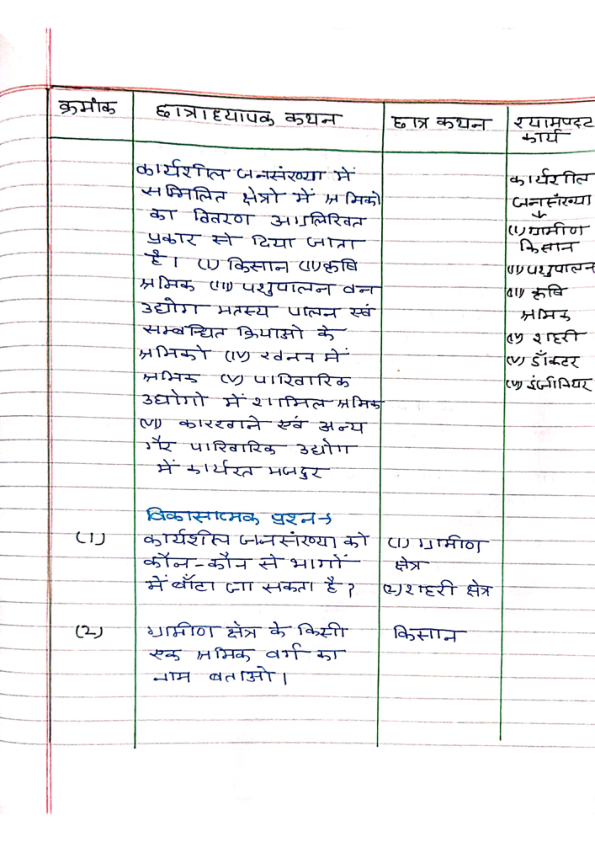 क्रमांक
छात्राध्यापक कथन
छात्र कथन
श्यामपट्ट
कार्य
कार्यशील जनसंख्या में
सम्मिलित क्षेत्रों में श्रमिको
का विवरण
प्रकार से दिया जाता
है। (i) किसान (ii) कृषि
श्रमिक (iii) पशुपालन वन
उद्योग मतस्य पालन एवं
सम्बन्धित क्रियाओ के
श्रमिको (iv) खनन में
श्रमिक (v) पारिवारिक
उद्योगों में शामिल श्रमिक
(vi) कारखाने एवं अन्य
गैर पारिवारिक उद्योग
में कार्यरत मजदुर
कार्यशील
जनसंख्या
↓
(i) ग्रामीण
किसान
(ii) पशुपालन
(iii) कृषि
श्रमिक
(iv) शहरी
(v) डॉक्टर
(vi) इंजीनियर
विकासात्मक प्रश्न →
(1)
कार्यशील जनसंख्या को
कौन-कौन से भागों
में बाँटा जा सकता है?
(1) ग्रामीण
क्षेत्र
(2) शहरी क्षेत्र
(2)
ग्रामीण क्षेत्र के किसी
एक श्रमिक वर्ग का
नाम बताओ।
किसान